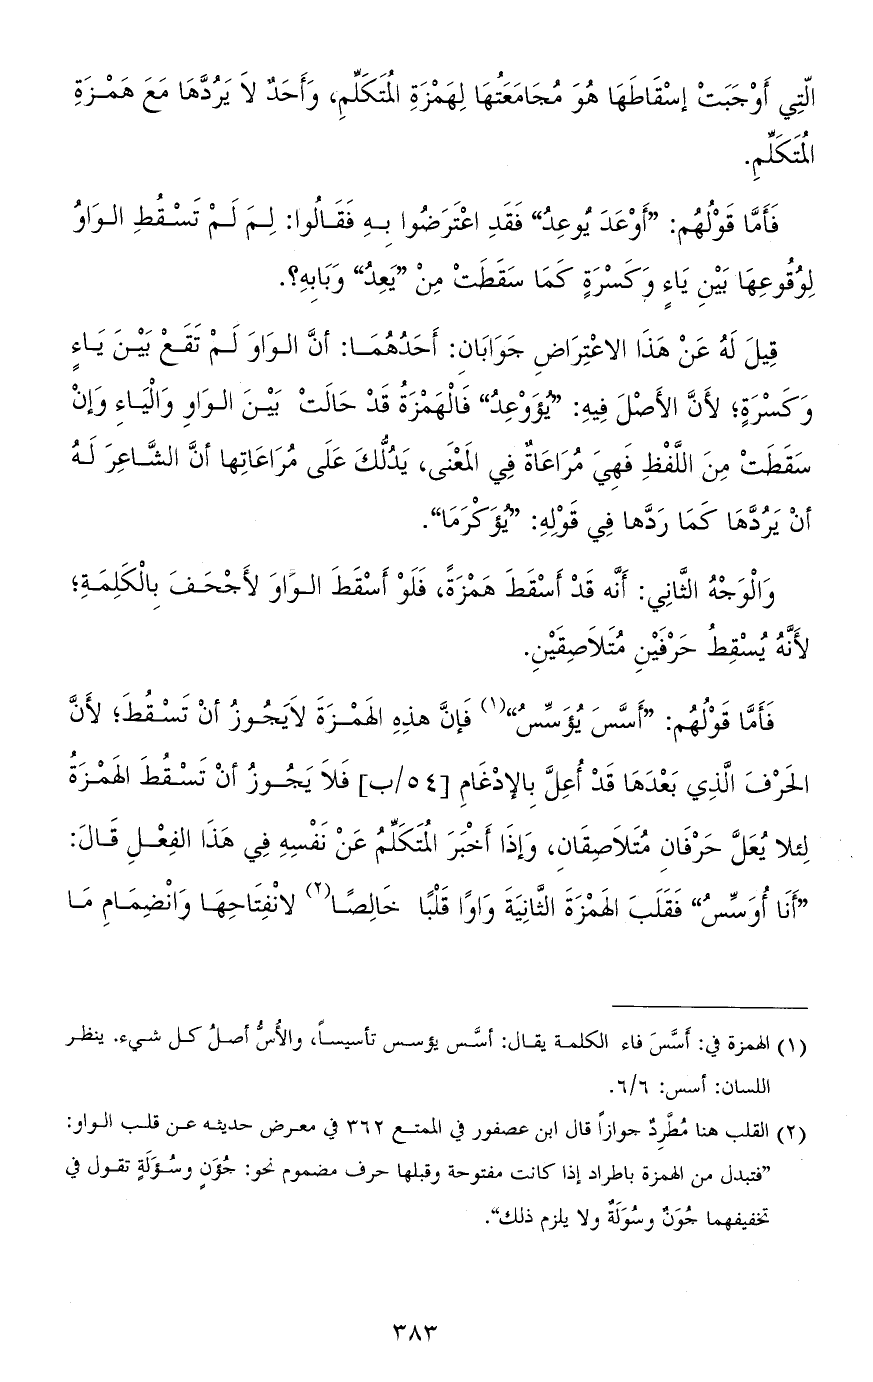 الَّتِي أَوْجَبَتْ إسْقَاطَهَا هُوَ مُجَامَعَتُهَا لِهَمْزَةِ المُتَكَلِّمِ، وَأَحَدٌ لاَ يَرُدُّهَا مَعَ هَمْزَةِ
المُتَكَلِّمِ.
فَأَمَّا قَوْلُهُم: ”أَوْعَدَ يُوعِدُ“ فَقَدِ اعْتَرَضُوا بِهِ فَقَالُوا: لِمَ لَمْ تَسْقُطِ الوَاوُ
لِوُقُوعِهَا بَيْنِ يَاءٍ وَكَسْرَةٍ كَمَا سَقَطَتْ مِنْ ”يَعِدُ“ وَبَابِهِ؟.
قِيلَ لَهُ عَنْ هَذَا الاعْتِرَاضِ جَوَابَان: أَحَدُهُمَا: أنَّ الوَاوَ لَمْ تَقَعْ بَيْنَ يَاءٍ
وَكَسْرَةٍ؛ لأَنَّ الأَصْلَ فِيهِ: ”يُؤَوْعِدُ“ فَالْهَمْزَةُ قَدْ حَالَتْ بَيْنَ الوَاوِ وَالْيَاءِ وَإنْ
سَقَطَتْ مِنَ اللَّفْظِ فَهِيَ مُرَاعَاةٌ فِي المَعْنَى، يَدُلُّكَ عَلَى مُرَاعَاتِها أنَّ الشَّاعِرَ لَهُ
أنْ يَرُدَّهَا كَمَا رَدَّها فِي قَوْلِهِ: ”يُؤَكْرَمَا“.
وَالْوَجْهُ الثَّانِي: أَنَّه قَدْ أَسْقَطَ هَمْزَةً، فَلَوْ أَسْقَطَ الوَاوَ لأَجْحَفَ بِالْكَلِمَةِ؛
لأَنَّهُ يُسْقِطُ حَرْفَيْنِ مُتَلاَصِقَيْنِ.
فَأَمَّا قَوْلُهُم: ”أَسَّسَ يُؤَسِّسُ“(١) فَإنَّ هذِهِ الهَمْزَةَ لاَيَجُوزُ أنْ تَسْقُطَ؛ لأَنَّ
الحَرْفَ الَّذِي بَعْدَهَا قَدْ أُعِلَّ بالإدْغَامِ [٥٤/ب] فَلاَ يَجُوزُ أنْ تَسْقُطَ الهَمْزَةُ
لِئلا يُعَلَّ حَرْفَان مُتَلاَصِقَان، وَإذَا أَخْبَرَ المُتَكَلِّمُ عَنْ نَفْسِهِ فِي هَذَا الفِعْلِ قَالَ:
”أَنَا أُوَسِّسُ“ فَقَلَبَ الهَمْزَةَ الثَّانِيَةَ وَاوًا قَلْبًا خَالِصًا(٢) لانْفِتَاحِهَا وَانْضِمَامِ مَا
(١) الهمزة في: أَسَّسَ فاء الكلمة يقال: أسَّس يؤسس تأسيساً، والأُسُّ أصلُ كل شيء. ينظر
اللسان: أسس: ٦/٦.
(٢) القلب هنا مُطَّرِدٌ جوازاً قال ابن عصفور في الممتع ٣٦٢ في معرض حديثه عن قلب الواو:
”فتبدل من الهمزة باطراد إذا كانت مفتوحة وقبلها حرف مضموم نحو: جُؤَنٍ وسُؤَلَةٍ تقول في
تخفيفهما جُوَنٌ وسُوَلَةٌ ولا يلزم ذلك“.
٣٨٣